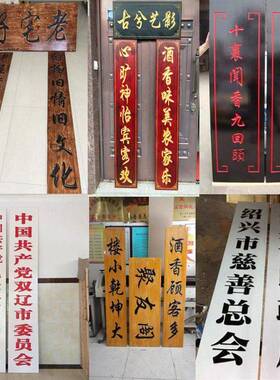 老宅
旧情旧文化
古兮艺影
心旷神怡宾客欢
酒香味美农家乐
十裏闻香九回頭
中国共产党双辽市委员会
楼小乾坤大
聚友阁
酒香顾客多
绍兴市慈善总会